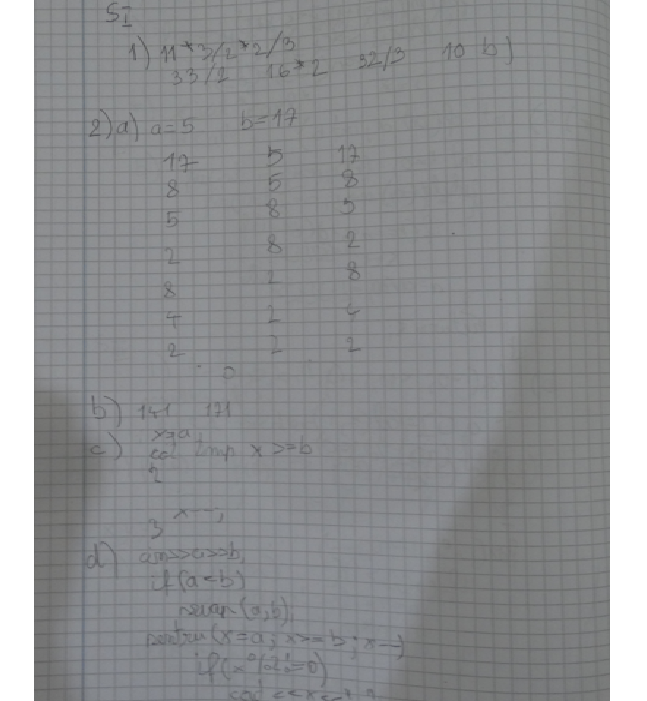 SI
1) 11*3/2*2/3
33/2 16*2 32/3 10 b)
2) a) a=5 b=17
17 5 17
8 5 8
5 8 5
2 8 2
8 2 8
4 2 4
2 2 2
0
b) 141 171
c) x=a
cat timp x>=b
2
x--;
3
d) cin>>a>>b;
if(a<b)
swap(a,b);
pentru(x=a; x>=b; x--)
if(x%2!=0)